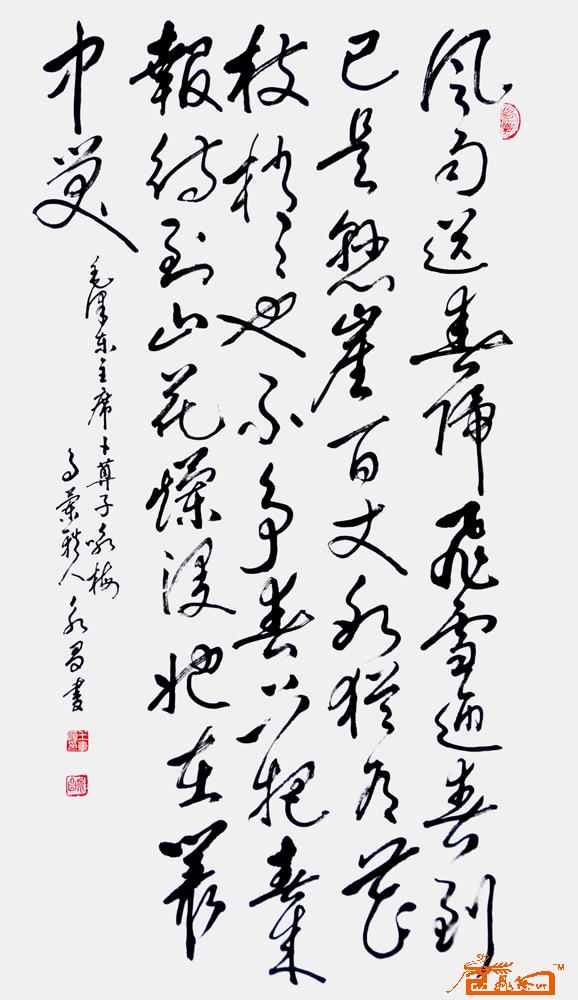 风雨送春歸飛雪迎春到
已是懸崖百丈冰猶有花
枝俏俏也不争春只把春来
報待到山花爛漫她在叢
中笑
毛澤东主席卜算子咏梅
人永昌書